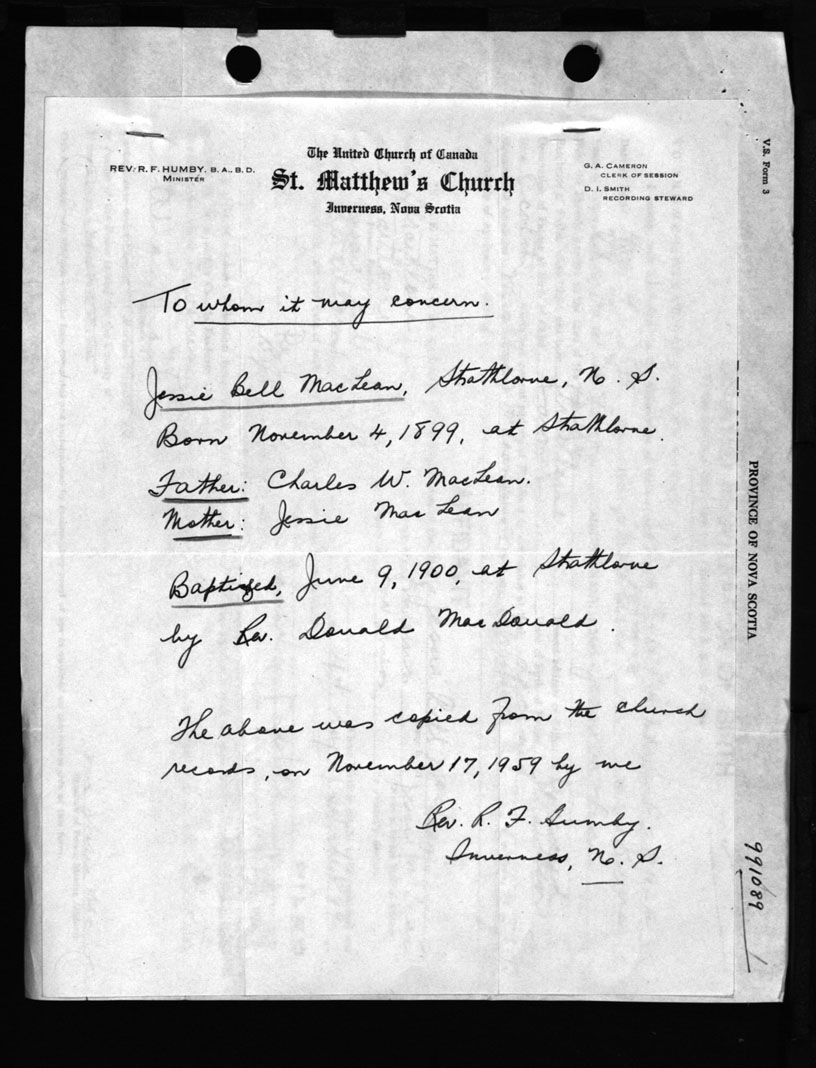 The United Church of Canada
St. Matthew's Church
Inverness, Nova Scotia
REV. R. F. HUMBY, B. A., B. D.
MINISTER
G. A. CAMERON
CLERK OF SESSION
D. I. SMITH
RECORDING STEWARD
To whom it may concern.
Jessie Bell MacLean, Strathlorne, N. S.
Born November 4, 1899, at Strathlorne.
Father: Charles W. MacLean.
Mother: Jessie MacLean
Baptized, June 9, 1900, at Strathlorne
by Rev. Donald MacDonald.
The above was copied from the church
records, on November 17, 1959 by me
Rev. R. F. Humby.
Inverness, N. S.
V.S. Form 3
PROVINCE OF NOVA SCOTIA
991089